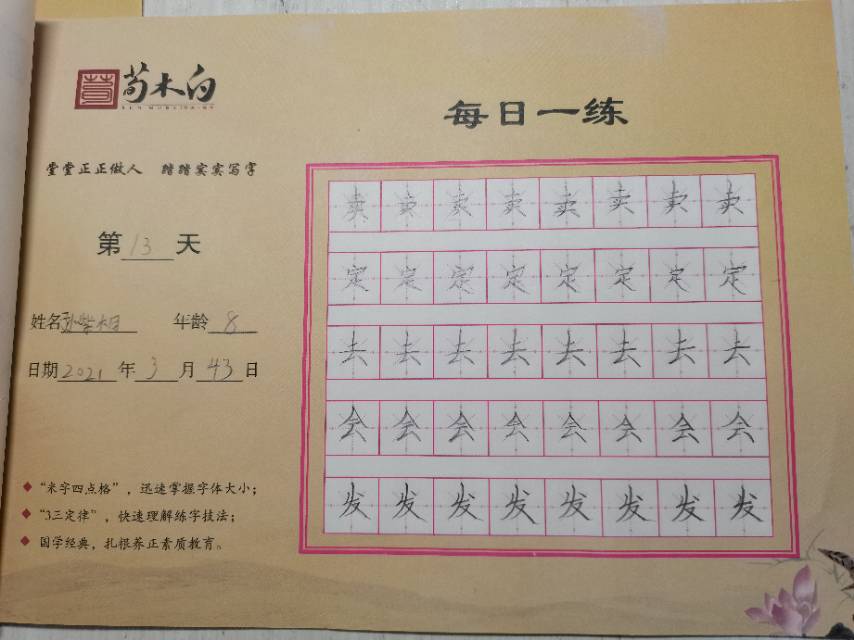 荀木白
每日一练
堂堂正正做人 踏踏实实写字
第13天
姓名 年龄8
日期2021年3月43日
"米字四点格",迅速掌握字体大小;
"3三定律",快速理解练字技法;
国学经典,扎根养正素质教育。
卖卖卖卖卖卖卖卖
定定定定定定定定
去去去去去去去去
会会会会会会会会
发发发发发发发发